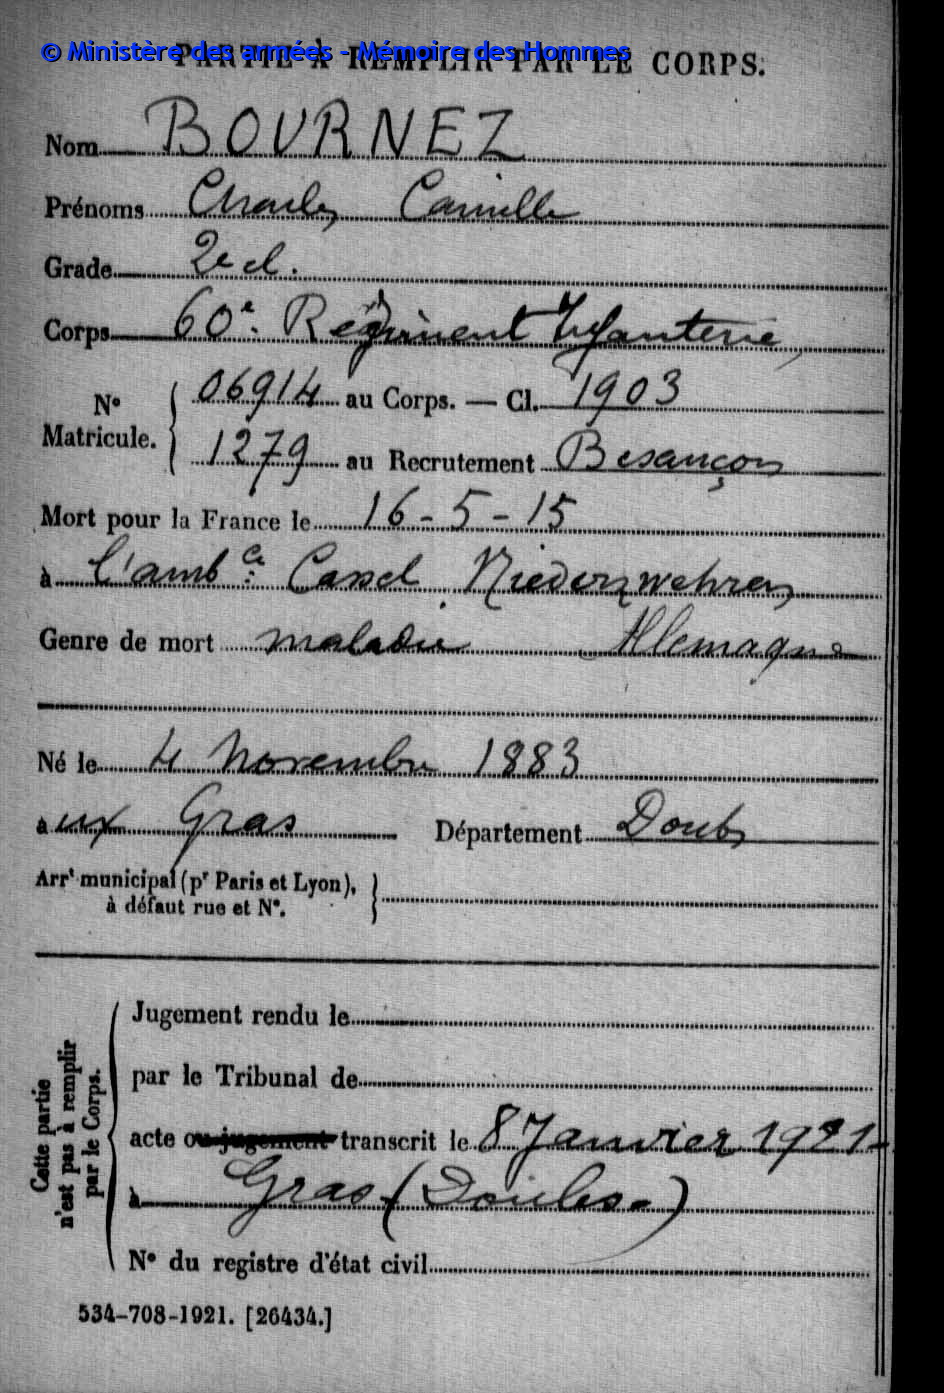 © Ministère des armées - Mémoire des Hommes
PARTIE À REMPLIR PAR LE CORPS.
Nom BOURNEZ
Prénoms Charles Camille
Grade 2e cl.
Corps 60e. Régiment Infanterie
N° Matricule. 06914 au Corps. — Cl. 1903
1279 au Recrutement Besançon
Mort pour la France le 16-5-15
à l'amb ce Cassel Niederzwehren
Genre de mort maladie Allemagne
Né le 4 Novembre 1883
aux Gras Département Doubs
Arrt municipal (pr Paris et Lyon),
à défaut rue et N°.
Cette partie
n'est pas à remplir
par le Corps.
Jugement rendu le
par le Tribunal de
acte ou jugement transcrit le 8 Janvier 1921
à Gras (Doubs.)
N° du registre d'état civil
534-708-1921. [26434.]